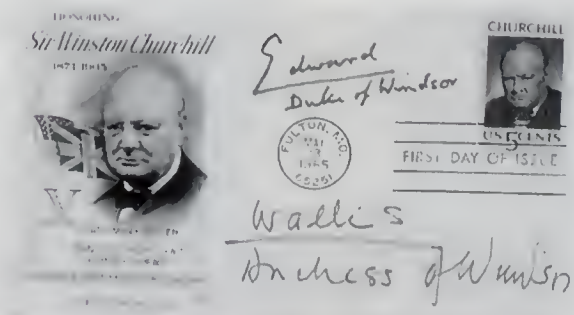 HONORING
Sir Winston Churchill
1874-1965
Edward
Duke of Windsor
FULTON, MO.
MAY
13
1965
65251
CHURCHILL
US 5 CENTS
FIRST DAY OF ISSUE
Wallis
Duchess of Windsor